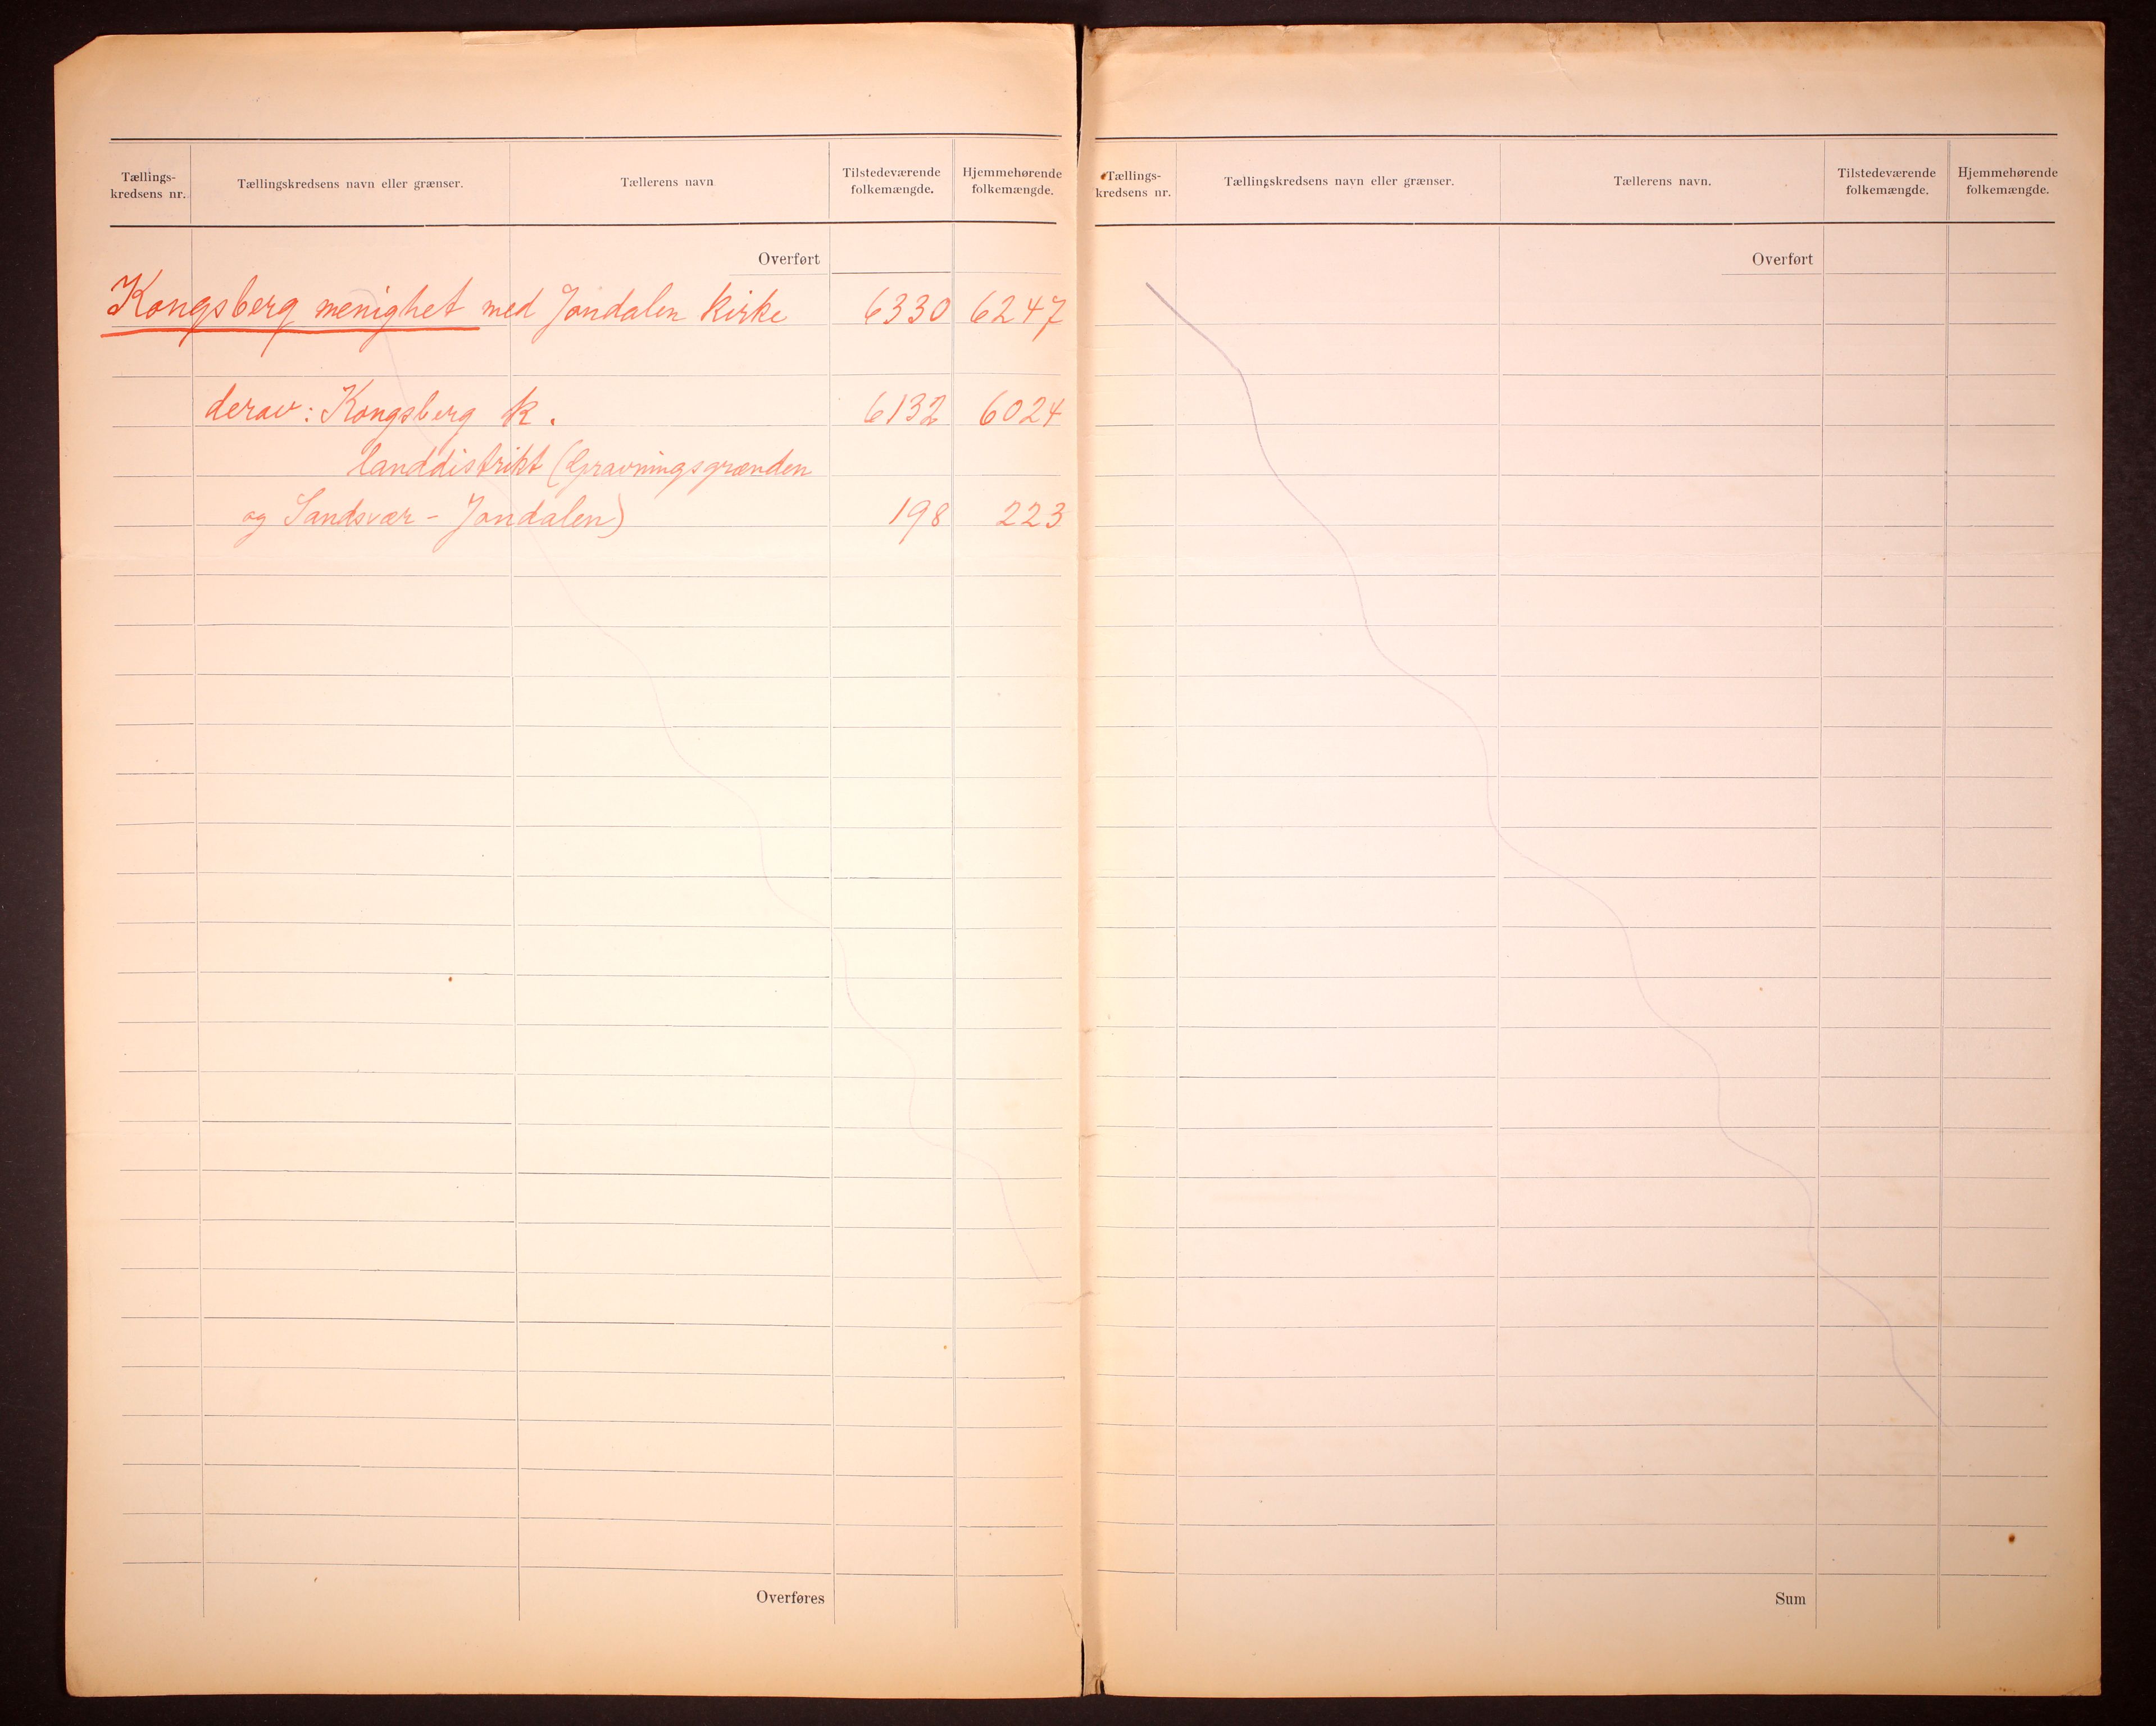 Tællings-
kredsens nr.
Tællingskredsens navn eller grænser.
Tællerens navn
Tilstedeværende
folkemængde.
Hjemmehørende
folkemængde.
Overført
Kongsberg menighet med Jondalen kirke 6330 6247
derav: Kongsberg k. 6132 6024
landdistrikt (Gravningsgrænden
og Sandsvær - Jondalen) 198 223
Overføres
Tællings-
kredsens nr.
Tællingskredsens navn eller grænser.
Tællerens navn.
Tilstedeværende
folkemængde.
Hjemmehørende
folkemængde.
Overført
Sum